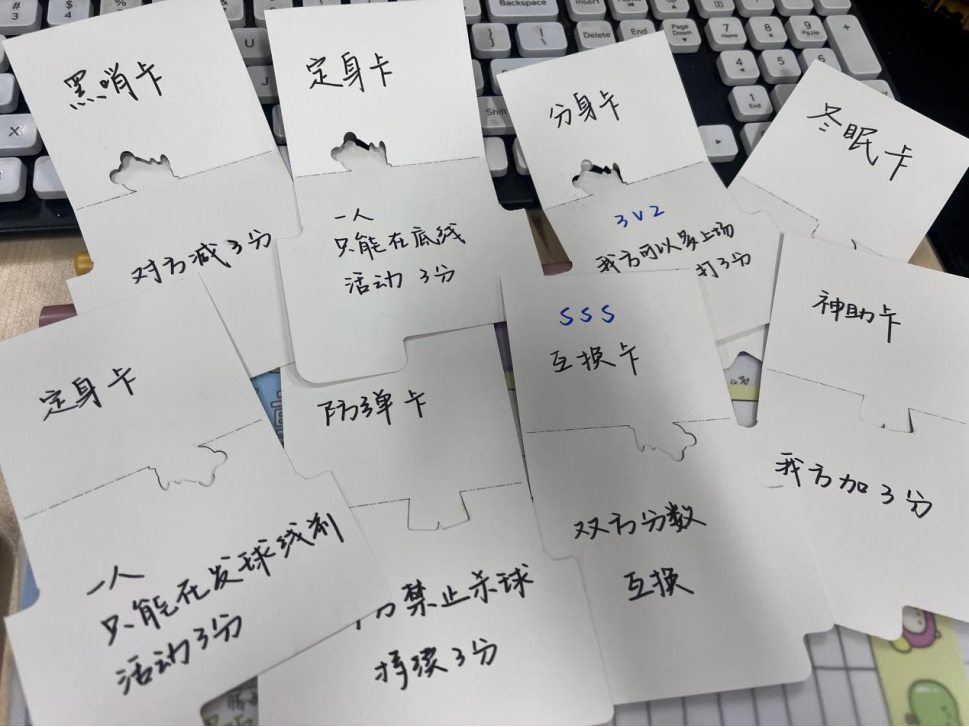 黑哨卡
对方减3分
定身卡
一人
只能在底线
活动 3分
分身卡
3V2
我方可以多上场
打3分
冬眠卡
定身卡
一人
只能在发球线前
活动3分
防弹卡
方禁止杀球
持续3分
SSS
互换卡
双方分数
互换
神助卡
我方加3分